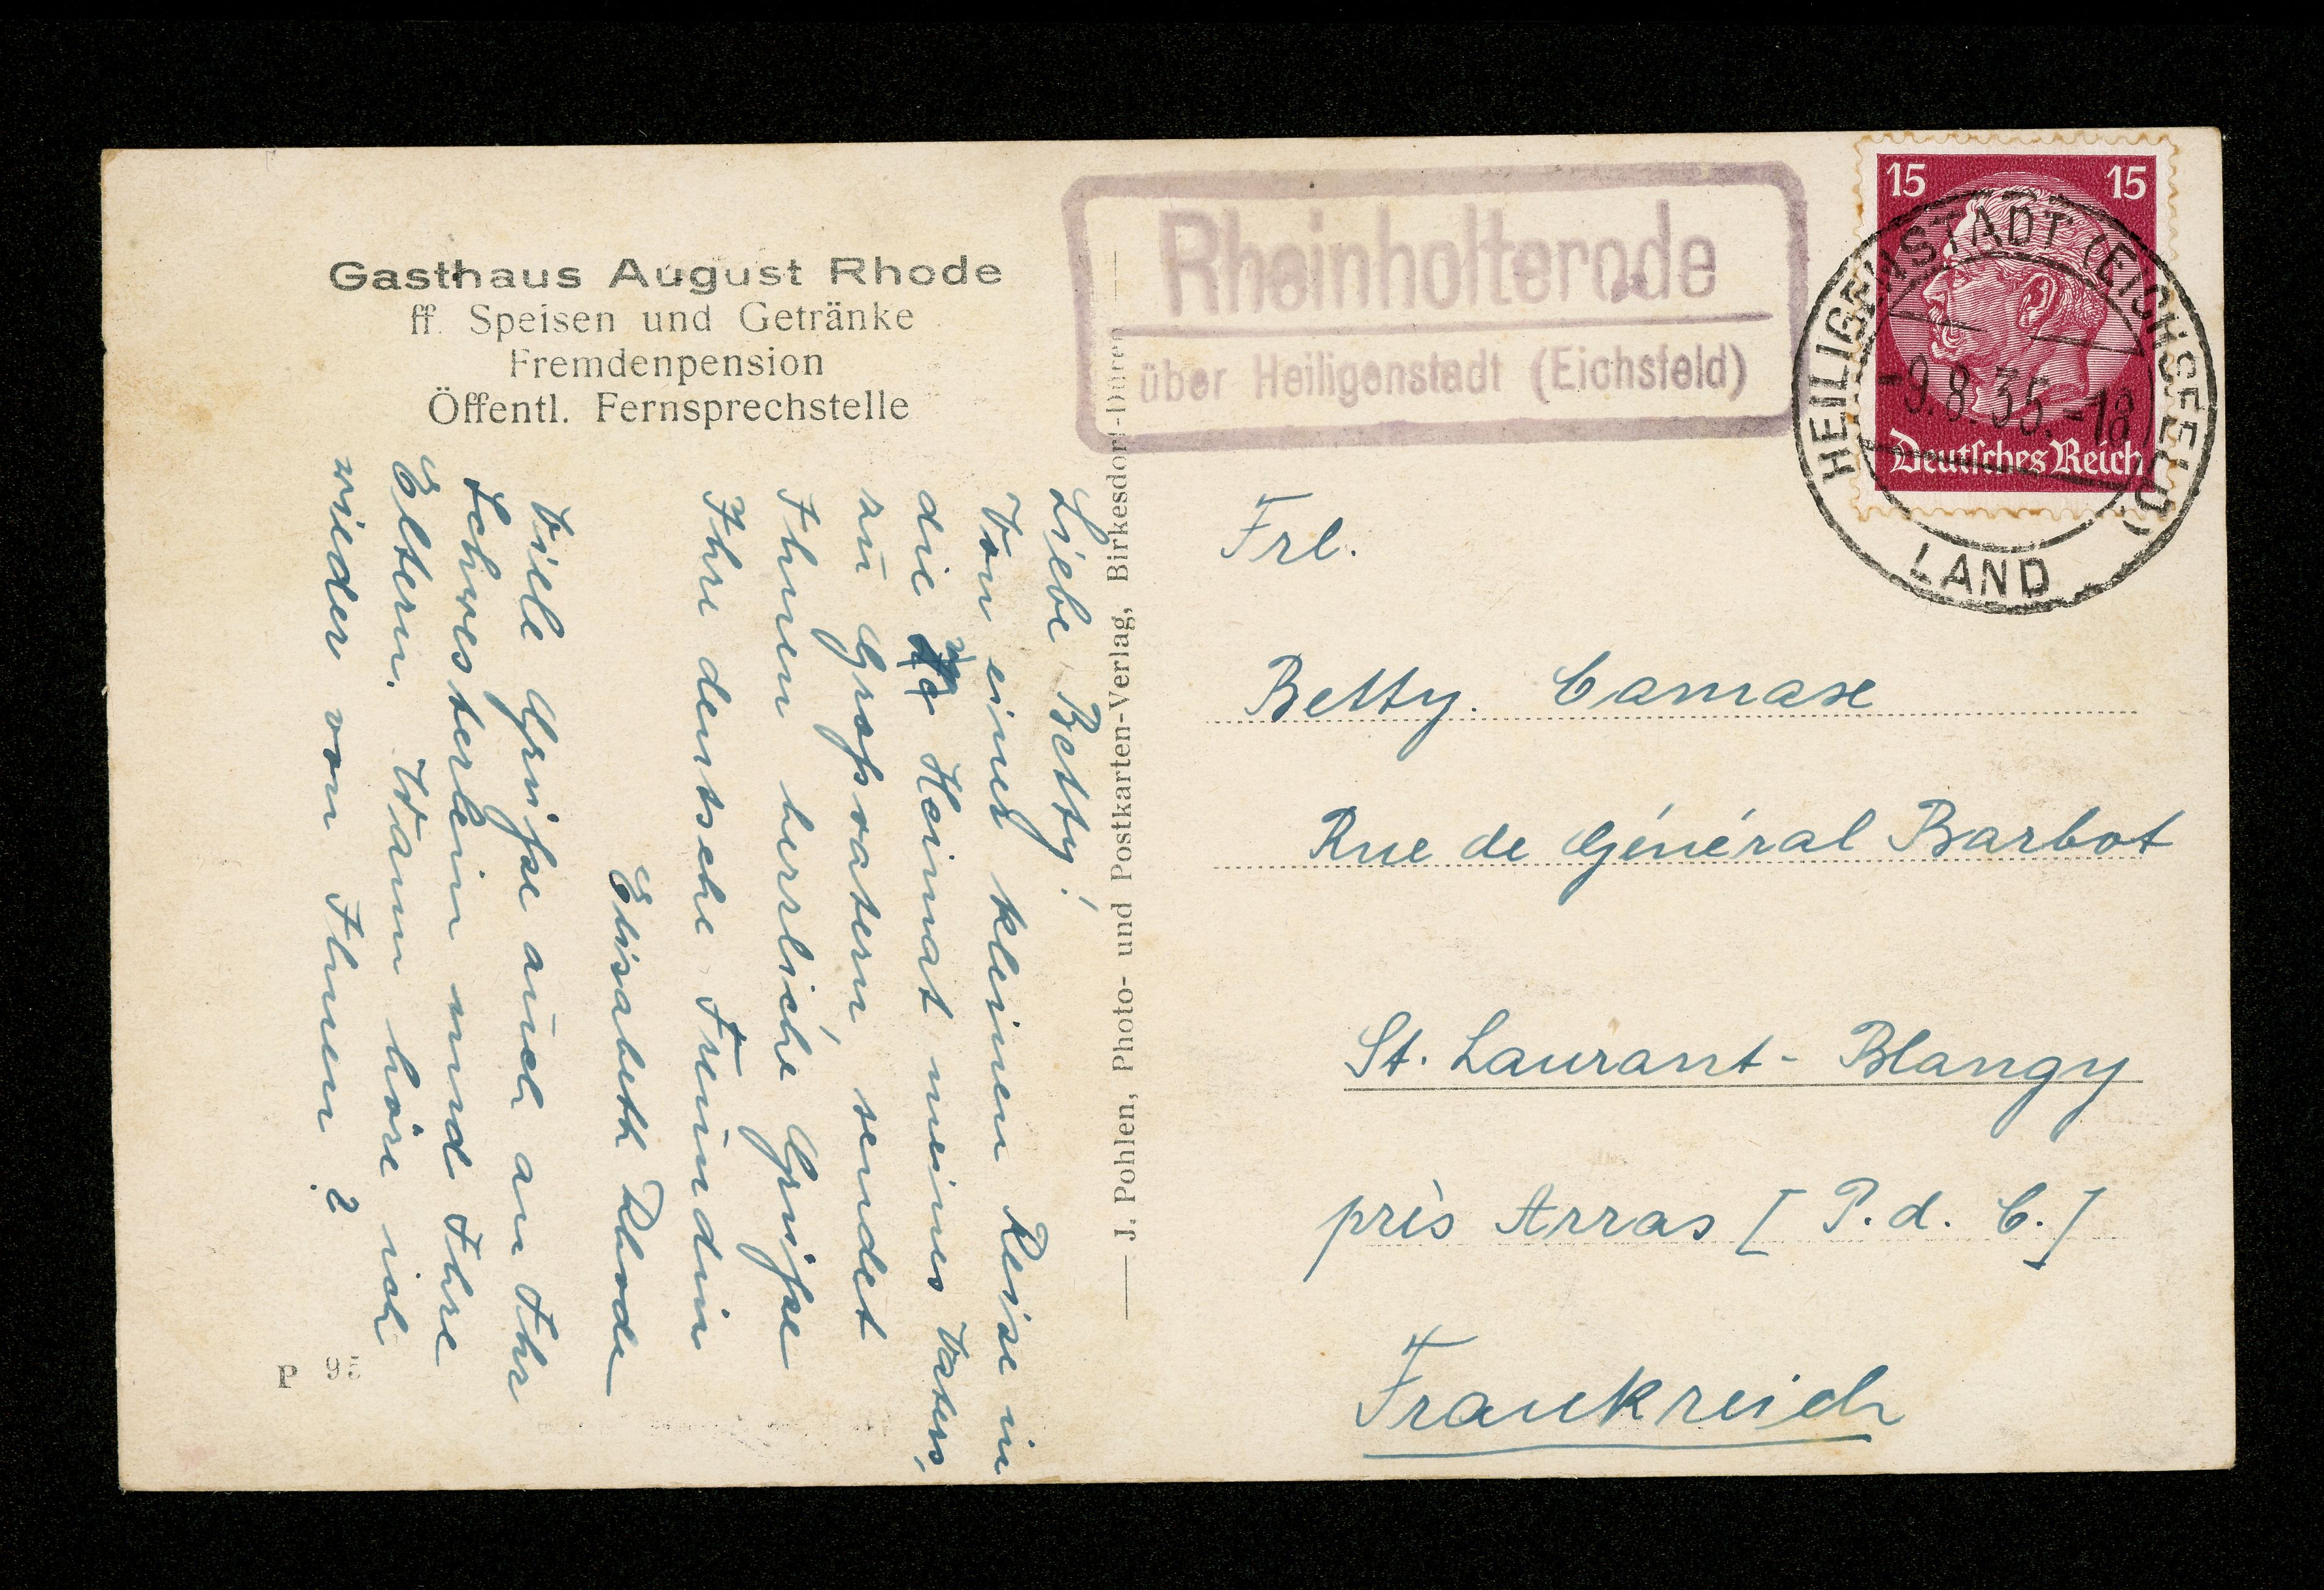 Gasthaus August Rhode
ff. Speisen und Getränke
Fremdenpension
Öffentl. Fernsprechstelle
Liebe Betty!
Von einer kleinen Reise in
die Heimat meines Vaters,
zu Großvatern, sendet
Ihnen herrliche Grüße
Ihre deutsche Freundin
Elisabeth Rhode
Viele Grüße auch an Ihr
Schwesterlein und Ihre
Eltern. Wann höre ich
wieder von Ihnen?
P 95
J. Pohlen, Photo- und Postkarten-Verlag, Birkesdorf-Düren
Rheinholterode
über Heiligenstadt (Eichsfeld)
15 15
Deutsches Reich
HEILIGENSTADT (EICHSFELD)
-9.8.35.-18
LAND
Frl.
Betty. Camase
Rue de Général Barbot
St. Laurant-Blangy
près Arras [P.d.C.]
Frankreich